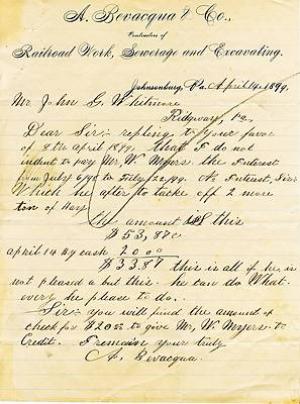 A. Bevacqua & Co.,
Contractors of
Railroad Work, Sewerage and Excavating.
Johnsonburg, Pa. April 14, 1899.
Mr John G. Whitmore
Ridgway, Pa.
Dear Sir: repling to your favor
of 8th april 1899. that I do not
indent to pay Mr. W. Myers. the Interest
from July 6/98 to July 22/99. At Interest, Sir:
Which he after to tacke off 2 more
ton of Hay
My amount is this
$53,87c
april 14 By cash 20 00
$33.87 this is all of he is
not pleased a but this. he can do What
every he please to do..
Sir: you will find the amount of
check for $20.00 to give Mr. W. Myers. to
Credit. I remaise your truly
A. Bevacqua.